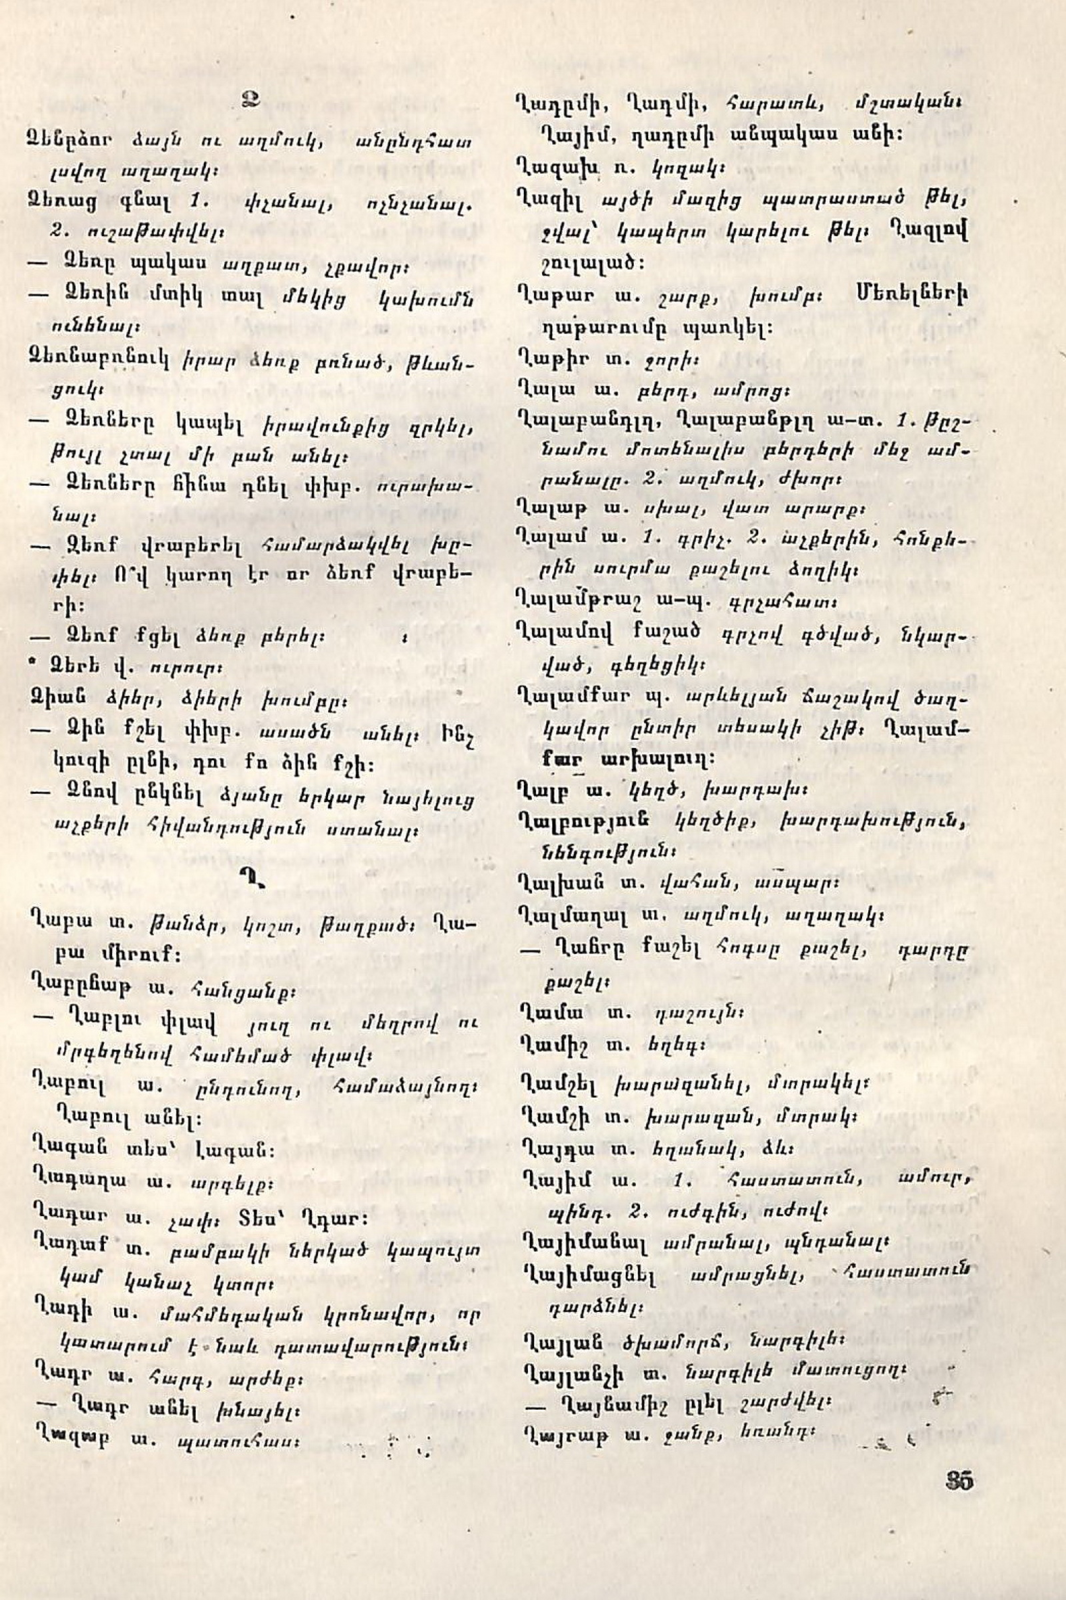 Ձ
Ձենըձոր ձայն ու աղմուկ, անընդհատ
լսվող աղաղակ։
Ձեռաց գնալ 1. փչանալ, ոչնչանալ.
2. ուշաթափվել։
— Ձեռը պակաս աղքատ, չքավոր։
— Ձեռին մտիկ տալ մեկից կախումն
ունենալ։
Ձեռնաբռնուկ իրար ձեռք բռնած, թևան-
ցուկ։
— Ձեռները կապել իրավունքից զրկել,
թույլ չտալ մի բան անել։
— Ձեռները հինա դնել փխբ. ուրախա-
նալ։
— Ձեռք վրաբերել համարձակվել խը-
փել։ Ո՞վ կարող էր որ ձեռք վրաբե-
րի։
— Ձեռք քցել ձեռք բերել։
* Ձերե վ. ուրուր։
Ձիան ձիեր, ձիերի խումբը։
— Ձին քշել փխբ. ասածն անել։ Ինչ
կուզի ըլնի, դու քո ձին քշի։
— Ձնով ընկնել ձյանը երկար նայելուց
աչքերի հիվանդություն ստանալ։
Ղ
Ղաբա տ. թանձր, կոշտ, թաղքած։ Ղա-
բա միրուք։
Ղաբըհաթ ա. հանցանք։
— Ղաբլու փլավ յուղ ու մեղրով ու
մրգեղենով համեմած փլավ։
Ղաբուլ ա. ընդունող, համաձայնող։
Ղաբուլ անել։
Ղագան տես՝ Լագան։
Ղադաղա ա. արգելք։
Ղադար ա. չափ։ Տես՝ Ղդար։
Ղադաք տ. բամբակի ներկած կապույտ
կամ կանաչ կտոր։
Ղադի ա. մահմեդական կրոնավոր, որ
կատարում է նաև դատավարություն։
Ղադր ա. հարգ, արժեք։
— Ղադր անել խնայել։
Ղազաբ ա. պատուհաս։
Ղադըմի, Ղադմի, հարատև, մշտական։
Ղայիմ, ղադըմի անպակաս անի։
Ղազախ ռ. կոզակ։
Ղազիլ այծի մազից պատրաստած թել,
ջվալ՝ կապերտ կարելու թել։ Ղազլով
շուլալած։
Ղաթար ա. շարք, խումբ։ Մեռելների
ղաթարումը պառկել։
Ղաթիր տ. ջորի։
Ղալա ա. բերդ, ամրոց։
Ղալաբանդլղ, Ղալաբանթլղ ա-տ. 1. թըշ-
նամու մոտենալիս բերդերի մեջ ամ-
րանալը. 2. աղմուկ, ժխոր։
Ղալաթ ա. սխալ, վատ արարք։
Ղալամ ա. 1. գրիչ. 2. աչքերին, հոնքե-
րին սուրմա քաշելու ձողիկ։
Ղալամթրաշ ա-պ. գրչահատ։
Ղալամով քաշած գրչով գծված, նկար-
ված, գեղեցիկ։
Ղալամքար պ. արևելյան ճաշակով ծաղ-
կավոր ընտիր տեսակի չիթ։ Ղալամ-
քար արխալուղ։
Ղալբ ա. կեղծ, խարդախ։
Ղալբություն կեղծիք, խարդախություն,
նենգություն։
Ղալխան տ. վահան, ասպար։
Ղալմաղալ տ. աղմուկ, աղաղակ։
— Ղահրը քաշել հոգսը քաշել, դարդը
քաշել։
Ղամա տ. դաշույն։
Ղամիշ տ. եղեգ։
Ղամշել խարազանել, մտրակել։
Ղամշի տ. խարազան, մտրակ։
Ղայդա տ. եղանակ, ձև։
Ղայիմ ա. 1. հաստատուն, ամուր,
պինդ. 2. ուժգին, ուժով։
Ղայիմանալ ամրանալ, պնդանալ։
Ղայիմացնել ամրացնել, հաստատուն
դարձնել։
Ղայլան ծխամորճ, նարգիլե։
Ղայլանչի տ. նարգիլե մատուցող։
— Ղայնամիշ ըլել շարժվել։
Ղայրաթ ա. ջանք, եռանդ։
35